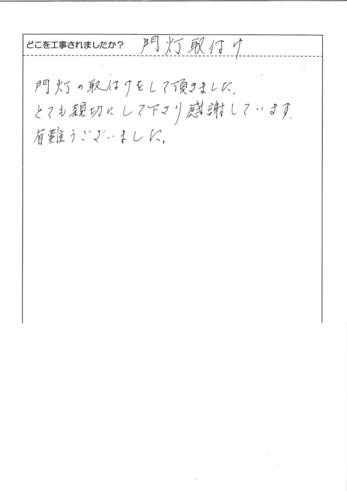 どこを工事されましたか？ 門灯取付け
門灯の取付けをして頂きました。
とても親切にして下さり感謝しています。
有難うございました。